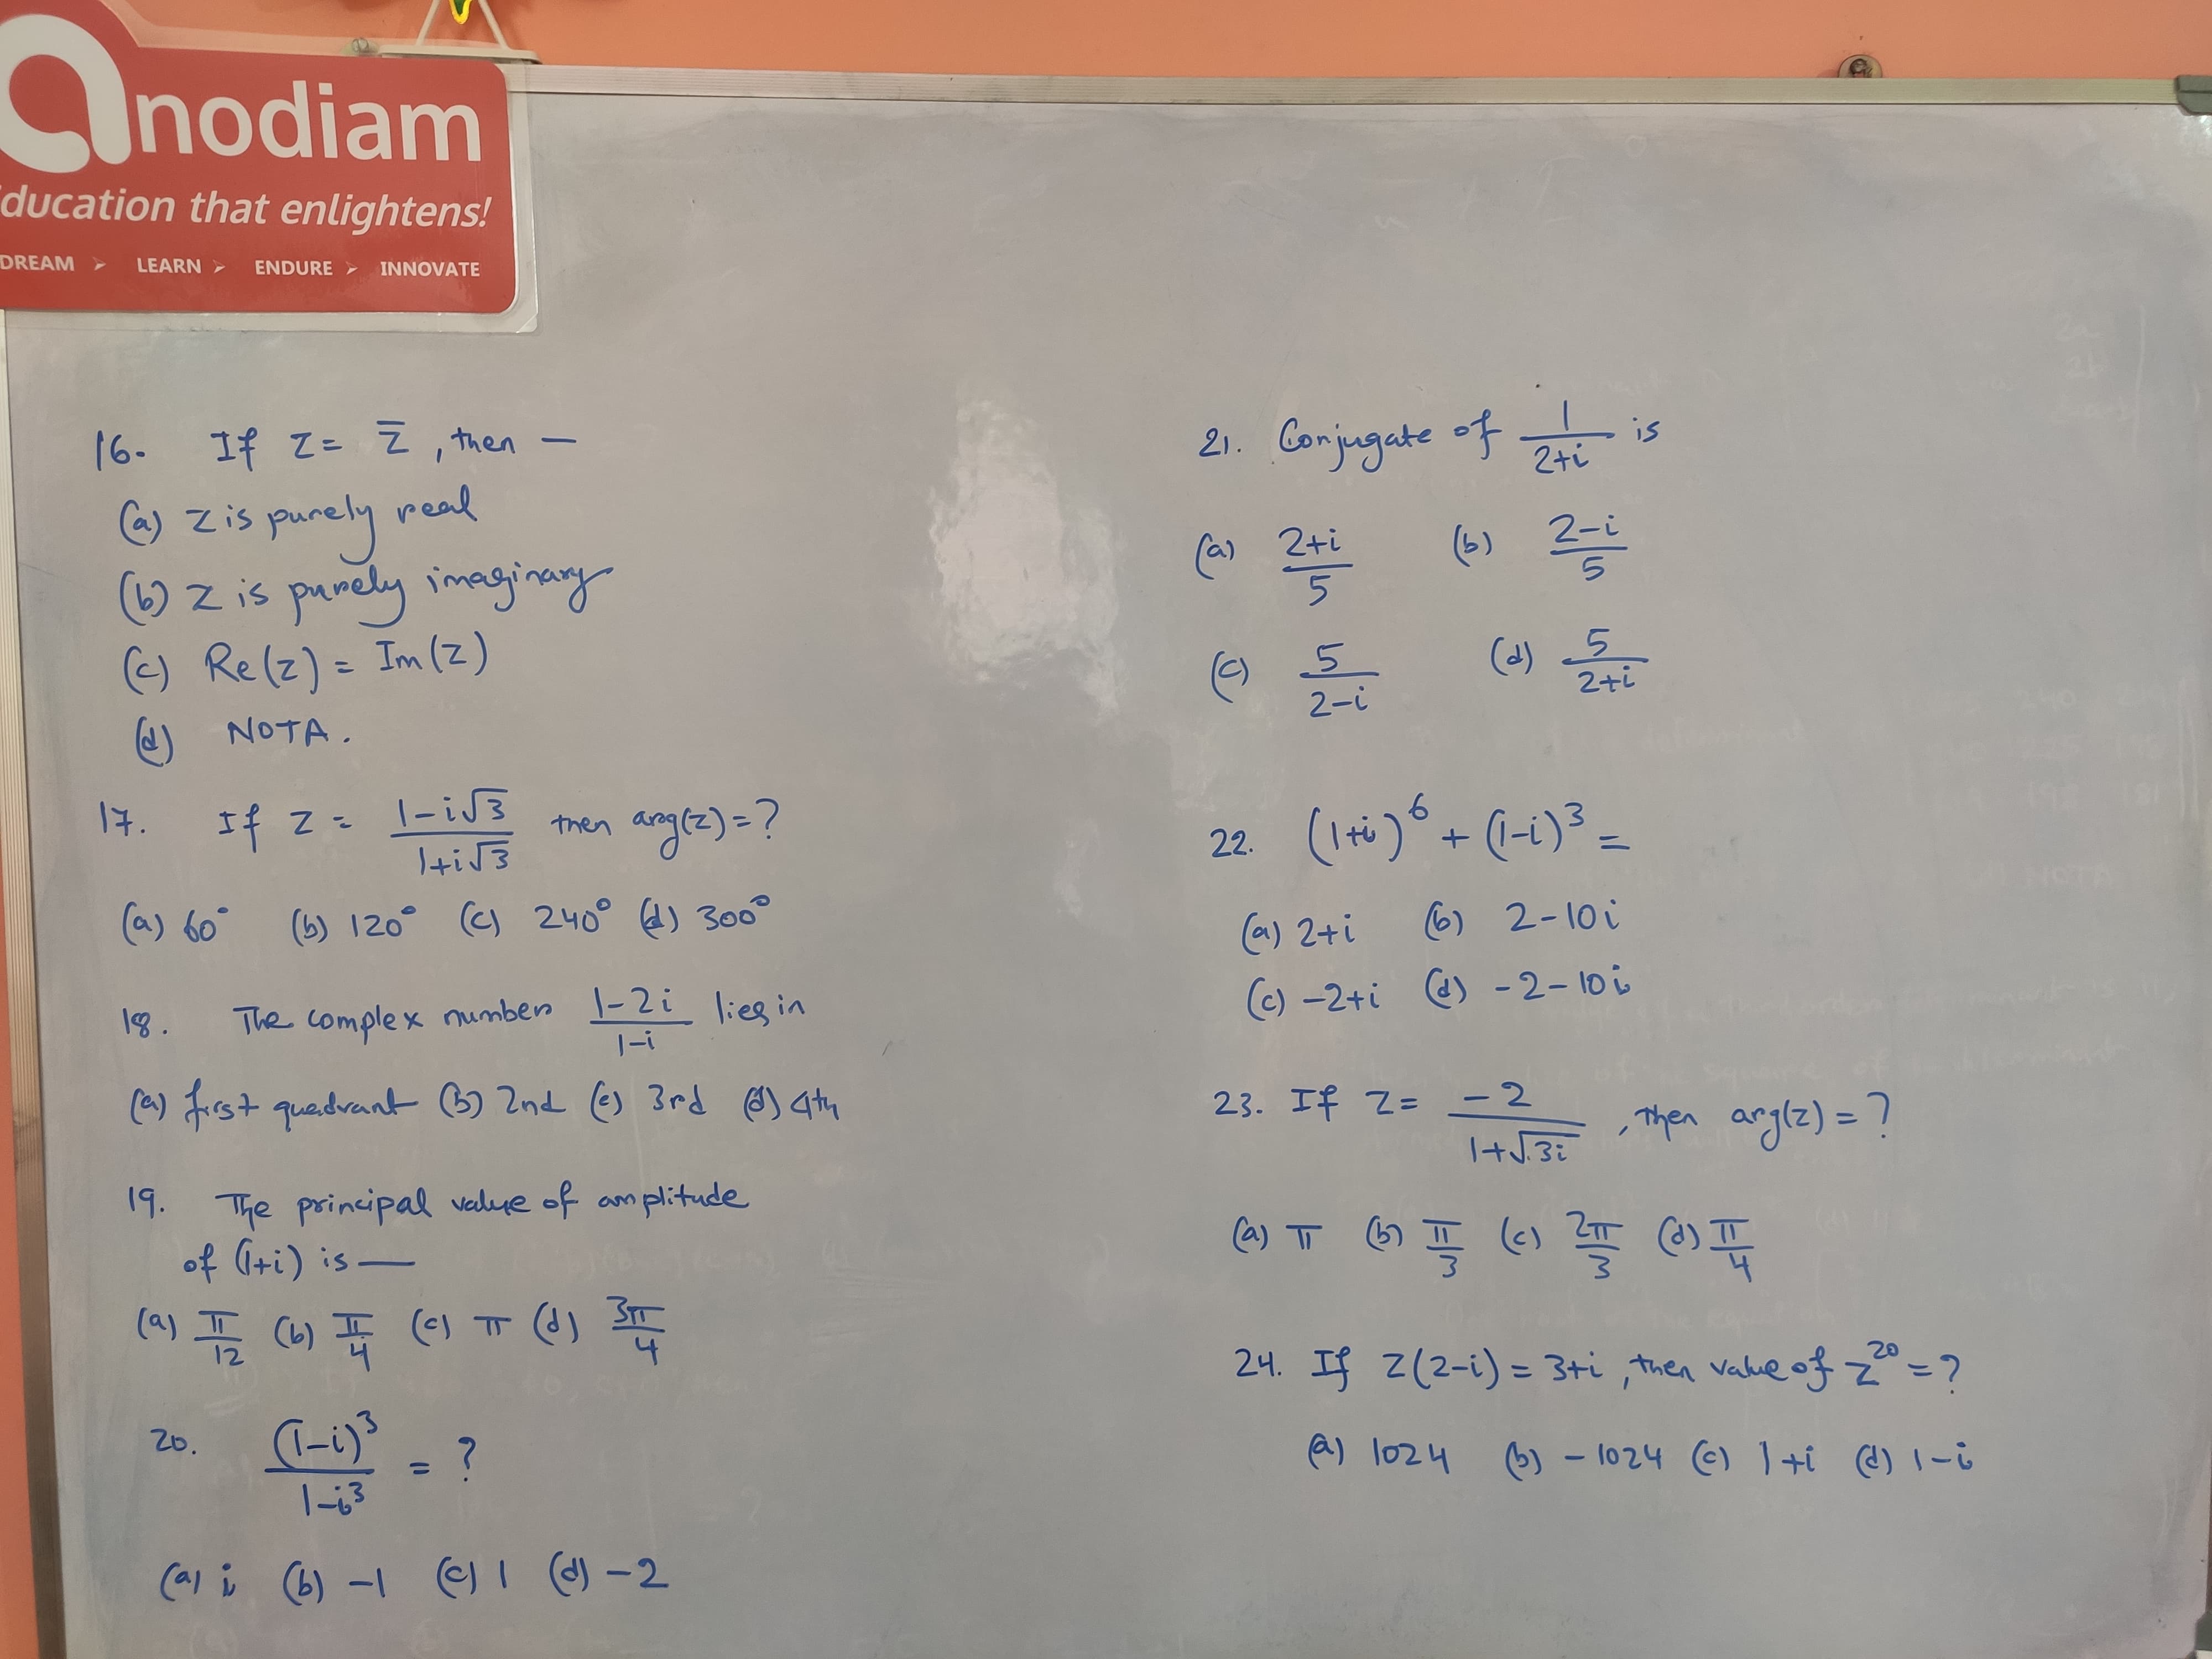 anodiam
Education that enlightens!
DREAM > LEARN > ENDURE > INNOVATE
16. If z = z̅, then —
(a) z is purely real
(b) z is purely imaginary
(c) Re(z) = Im(z)
(d) NOTA.
17. If z = (1-i√3)/(1+i√3) then arg(z) = ?
(a) 60° (b) 120° (c) 240° (d) 300°
18. The complex number (1-2i)/(1-i) lies in
(a) first quadrant (b) 2nd (c) 3rd (d) 4th
19. The principal value of amplitude
of (1+i) is —
(a) π/12 (b) π/4 (c) π (d) 3π/4
20. (1-i)³/(1-i³) = ?
(a) i (b) -1 (c) 1 (d) -2
21. Conjugate of 1/(2+i) is
(a) (2+i)/5 (b) (2-i)/5
(c) 5/(2-i) (d) 5/(2+i)
22. (1+i)⁶ + (1-i)³ =
(a) 2+i (b) 2-10i
(c) -2+i (d) -2-10i
23. If z = -2/(1+√3i), then arg(z) = ?
(a) π (b) π/3 (c) 2π/3 (d) π/4
24. If z(2-i) = 3+i, then value of z²⁰ = ?
(a) 1024 (b) -1024 (c) 1+i (d) 1-i